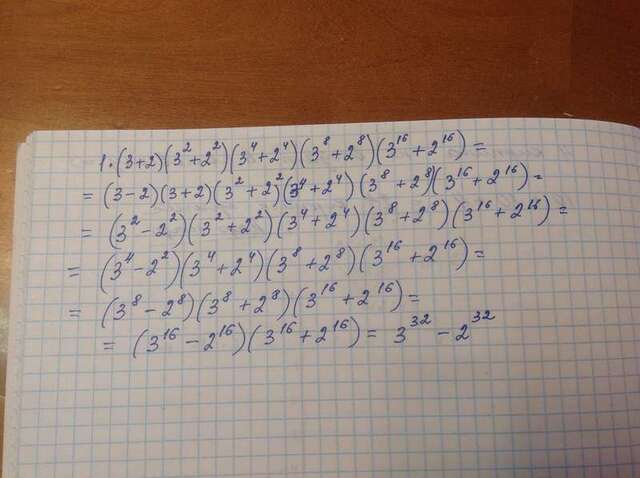 1·(3+2)(3²+2²)(3⁴+2⁴)(3⁸+2⁸)(3¹⁶+2¹⁶)=
=(3-2)(3+2)(3²+2²)(3⁴+2⁴)(3⁸+2⁸)(3¹⁶+2¹⁶)=
=(3²-2²)(3²+2²)(3⁴+2⁴)(3⁸+2⁸)(3¹⁶+2¹⁶)=
=(3⁴-2²)(3⁴+2⁴)(3⁸+2⁸)(3¹⁶+2¹⁶)=
=(3⁸-2⁸)(3⁸+2⁸)(3¹⁶+2¹⁶)=
=(3¹⁶-2¹⁶)(3¹⁶+2¹⁶)=3³²-2³²